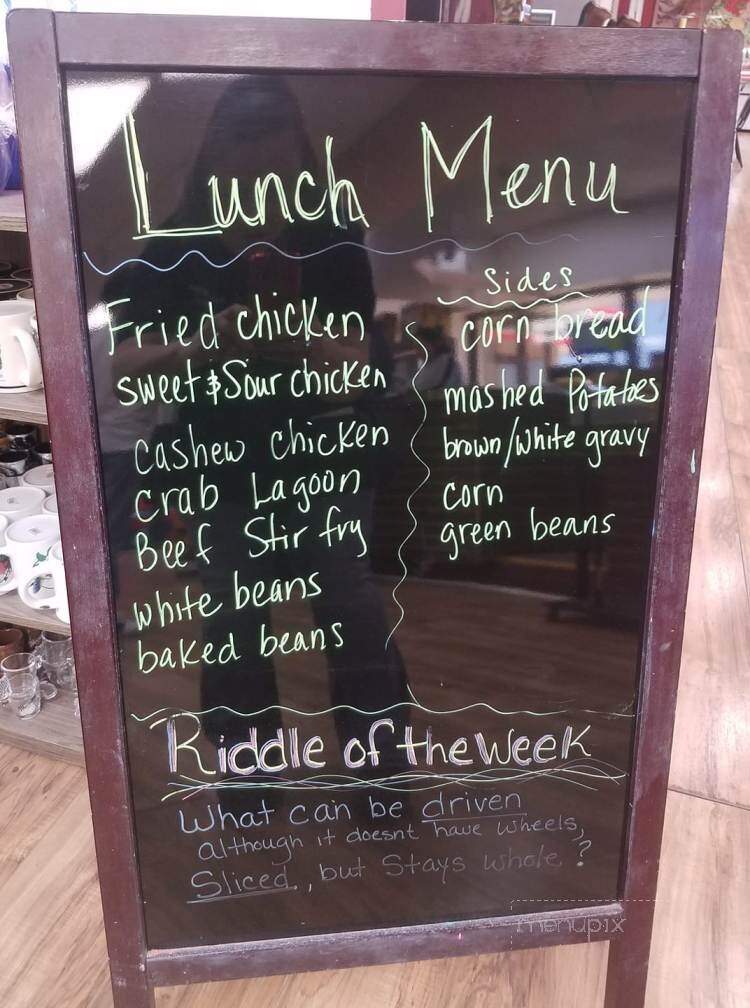 Lunch Menu
Fried chicken
sweet & Sour chicken
cashew chicken
crab Lagoon
Beef Stir fry
white beans
baked beans
Sides
corn bread
mashed Potatoes
brown/white gravy
corn
green beans
Riddle of the Week
What can be driven
although it doesnt have wheels,
Sliced, but Stays whole?
menupix